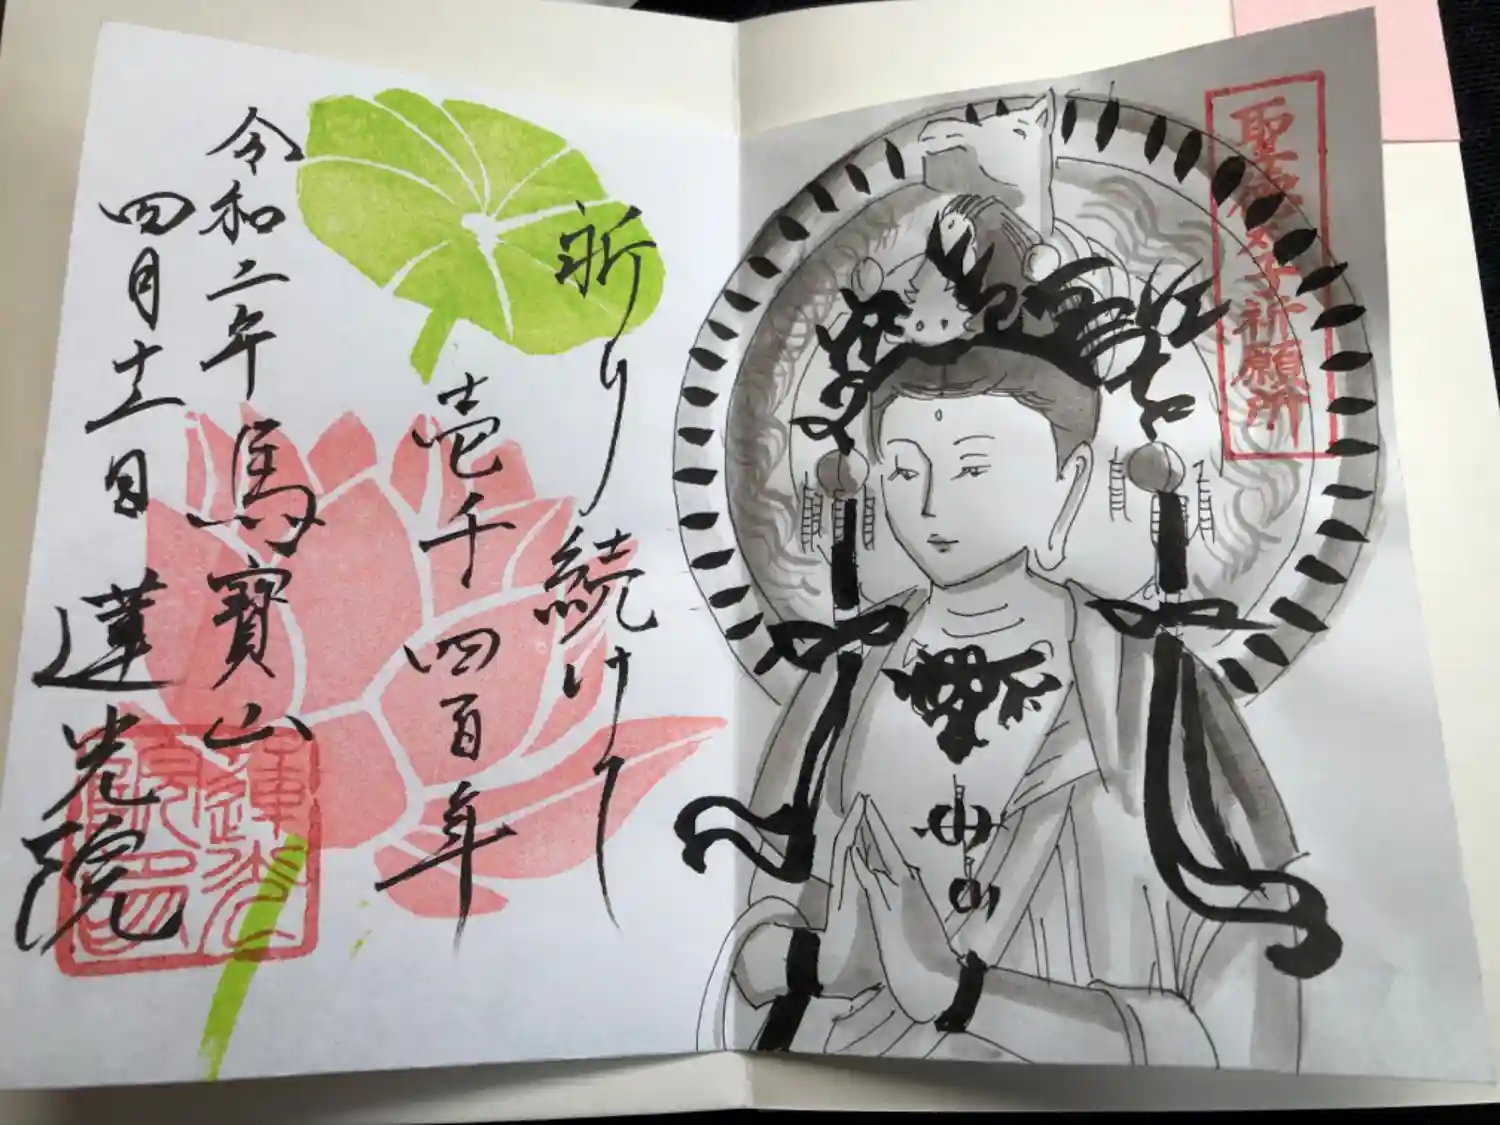 聖徳太子祈願所
祈り続けて
壱千四百年
令和二年 馬寶山
四月十三日 蓮光院